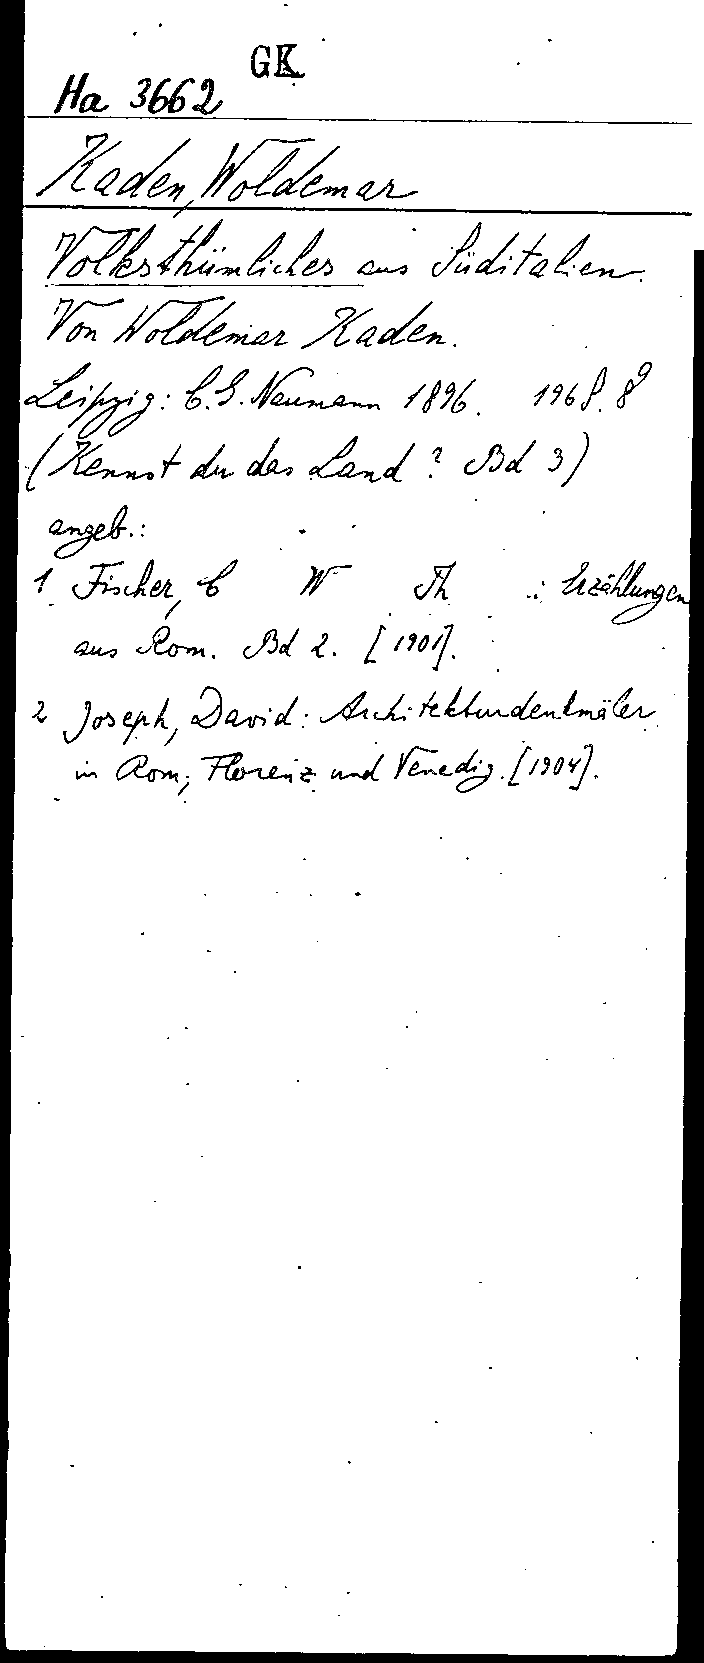 GK
Ha 3662
Kaden, Woldemar
Volksthümliches aus Süditalien.
Von Woldemar Kaden.
Leipzig: C. G. Naumann 1896. 196 S. 8°
(Kennst du das Land? Bd 3)
angeb.:
1 Fischer, C W Th .: Erzählungen
aus Rom. Bd 2. [1901].
2 Joseph, David: Architekturdenkmäler
in Rom, Florenz und Venedig. [1904].